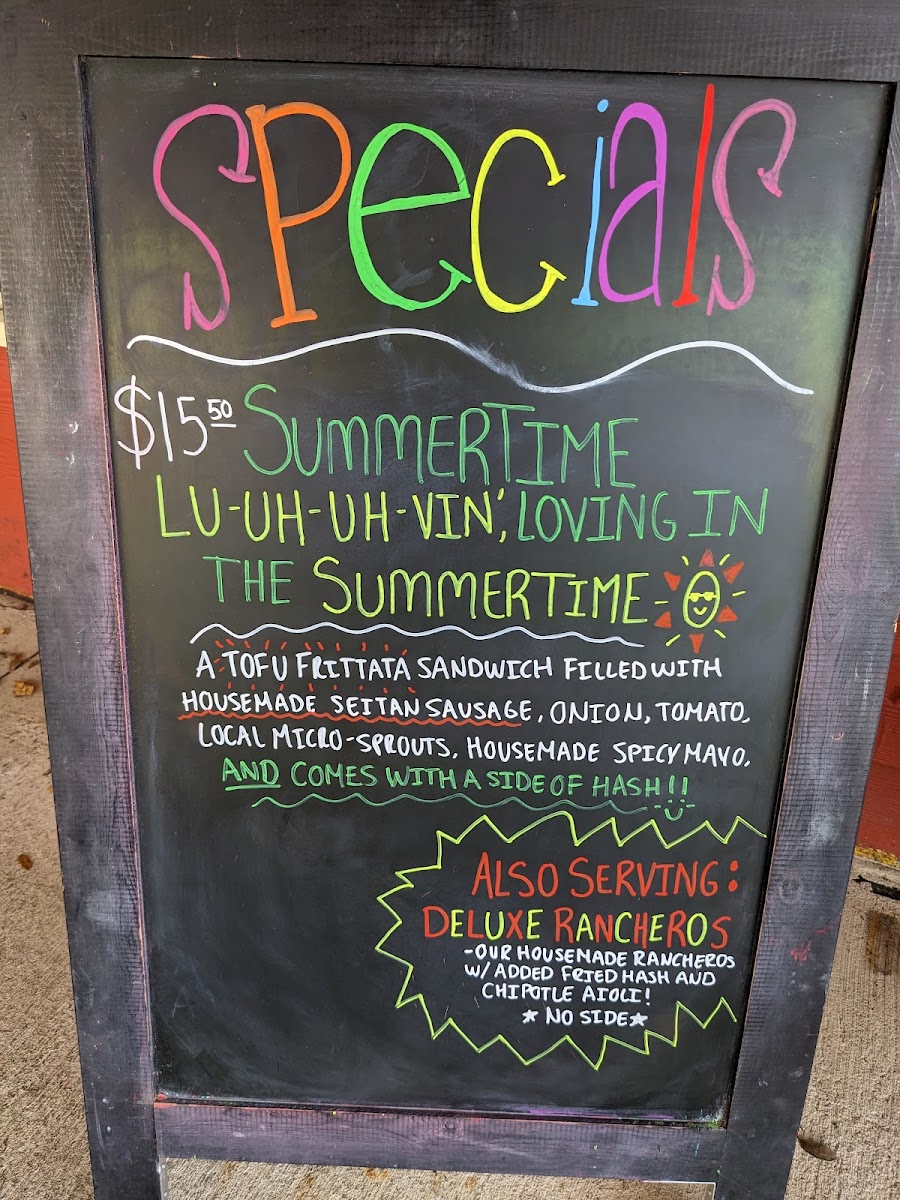 SPecials
$15.50 SUMMERTIME
LU-UH-UH-VIN', LOVING IN
THE SUMMERTIME
A TOFU FRITTATA SANDWICH FILLED WITH
HOUSEMADE SEITAN SAUSAGE, ONION, TOMATO,
LOCAL MICRO-SPROUTS, HOUSEMADE SPICY MAYO.
AND COMES WITH A SIDE OF HASH!!
ALSO SERVING:
DELUXE RANCHEROS
-OUR HOUSEMADE RANCHEROS
W/ ADDED FRIED HASH AND
CHIPOTLE AIOLI!
★ NO SIDE★